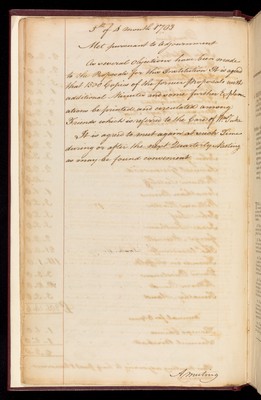 5th. of 4 month 1793
Met pursuant to Adjournment
As several objections have been made
to the Proposals for this Institution It is agreed
that 1500 Copies of the former Proposals with
additional Remarks and some further Explan
ations be printed and circulated among
Friends which is referred to the Care of Wm Tuke
It is agreed to meet again at such Time
during or after the next Quarterly Meeting
as may be found convenient
A meeting